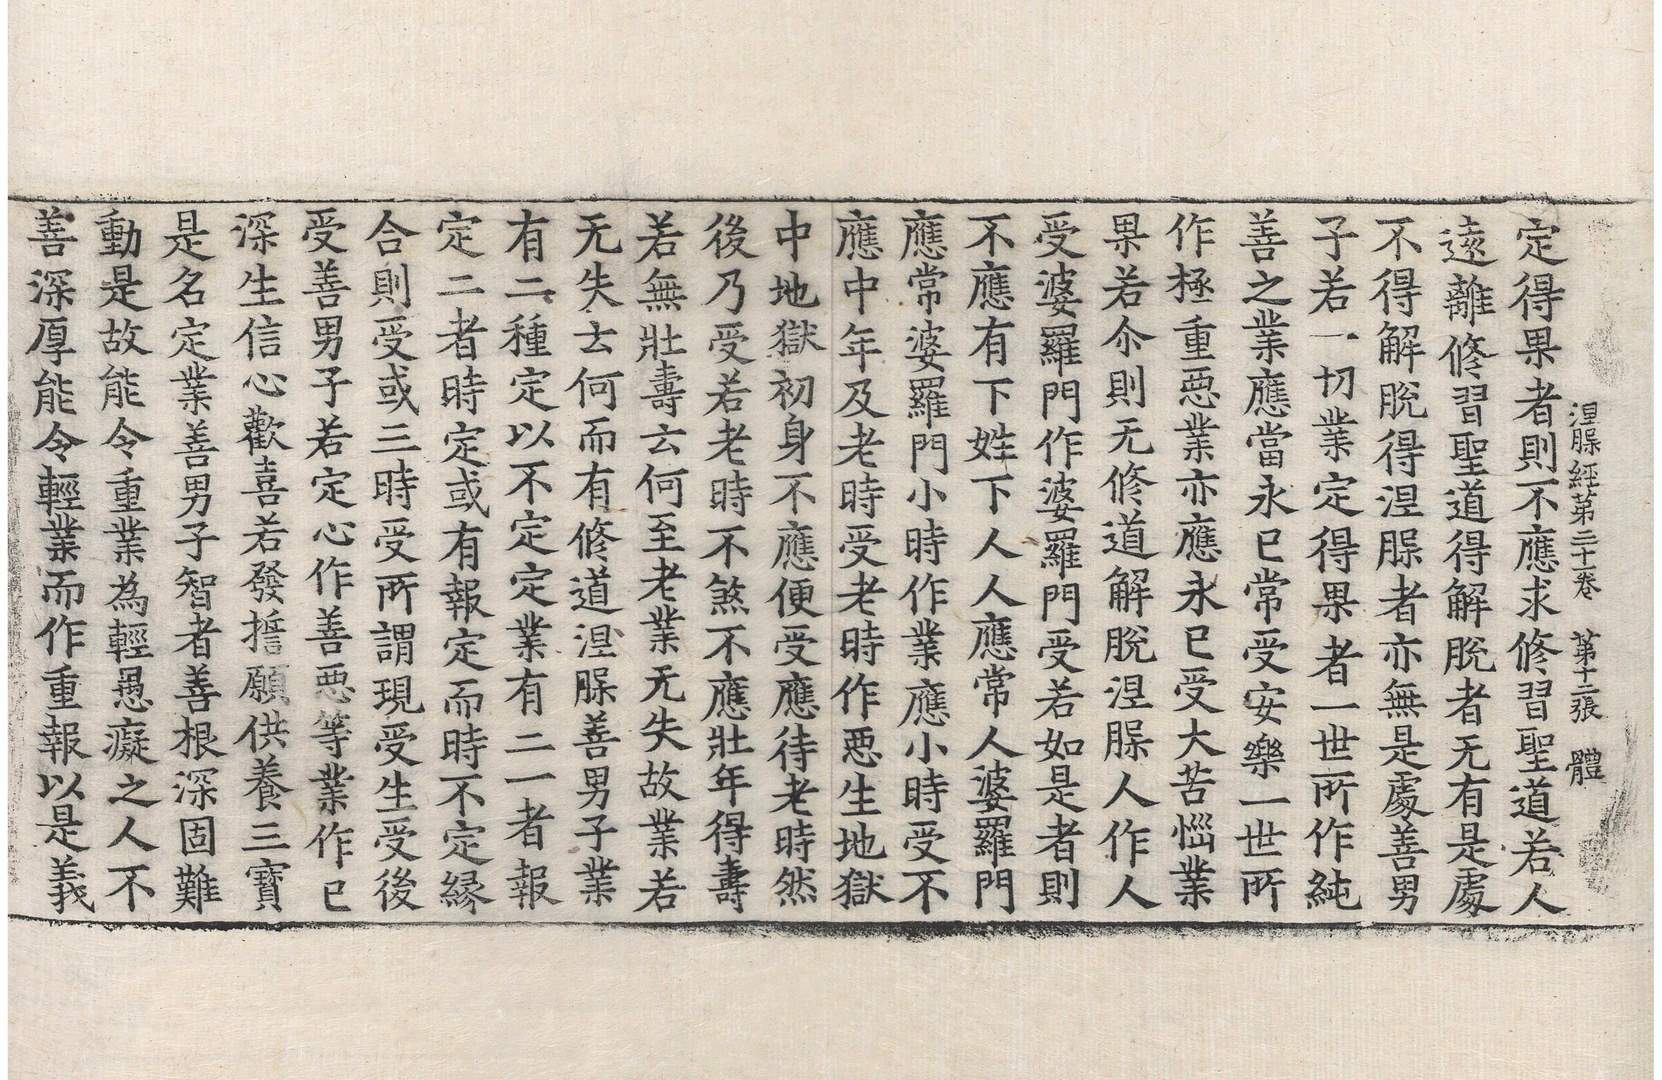 涅槃經第三十一卷　第十二張　體
定得果者則不應求修習聖道若人
遠離修習聖道得解脫者无有是處
不得解脫得涅槃者亦無是處善男
子若一切業定得果者一世所作純
善之業應當永已常受安樂一世所
作極重惡業亦應永已受大苦惱業
果若尒則无修道解脫涅槃人作人
受婆羅門作婆羅門受若如是者則
不應有下姓下人人應常人婆羅門
應常婆羅門小時作業應小時受不
應中年及老時受老時作惡生地獄
中地獄初身不應便受應待老時然
後乃受若老時不煞不應壯年得壽
若無壯壽云何至老業无失故業若
无失去何而有修道涅槃善男子業
有二種定以不定定業有二一者報
定二者時定或有報定而時不定緣
合則受或三時受所謂現受生受後
受善男子若定心作善惡等業作已
深生信心歡喜若發誓願供養三寶
是名定業善男子智者善根深固難
動是故能令重業為輕愚癡之人不
善深厚能令輕業而作重報以是義